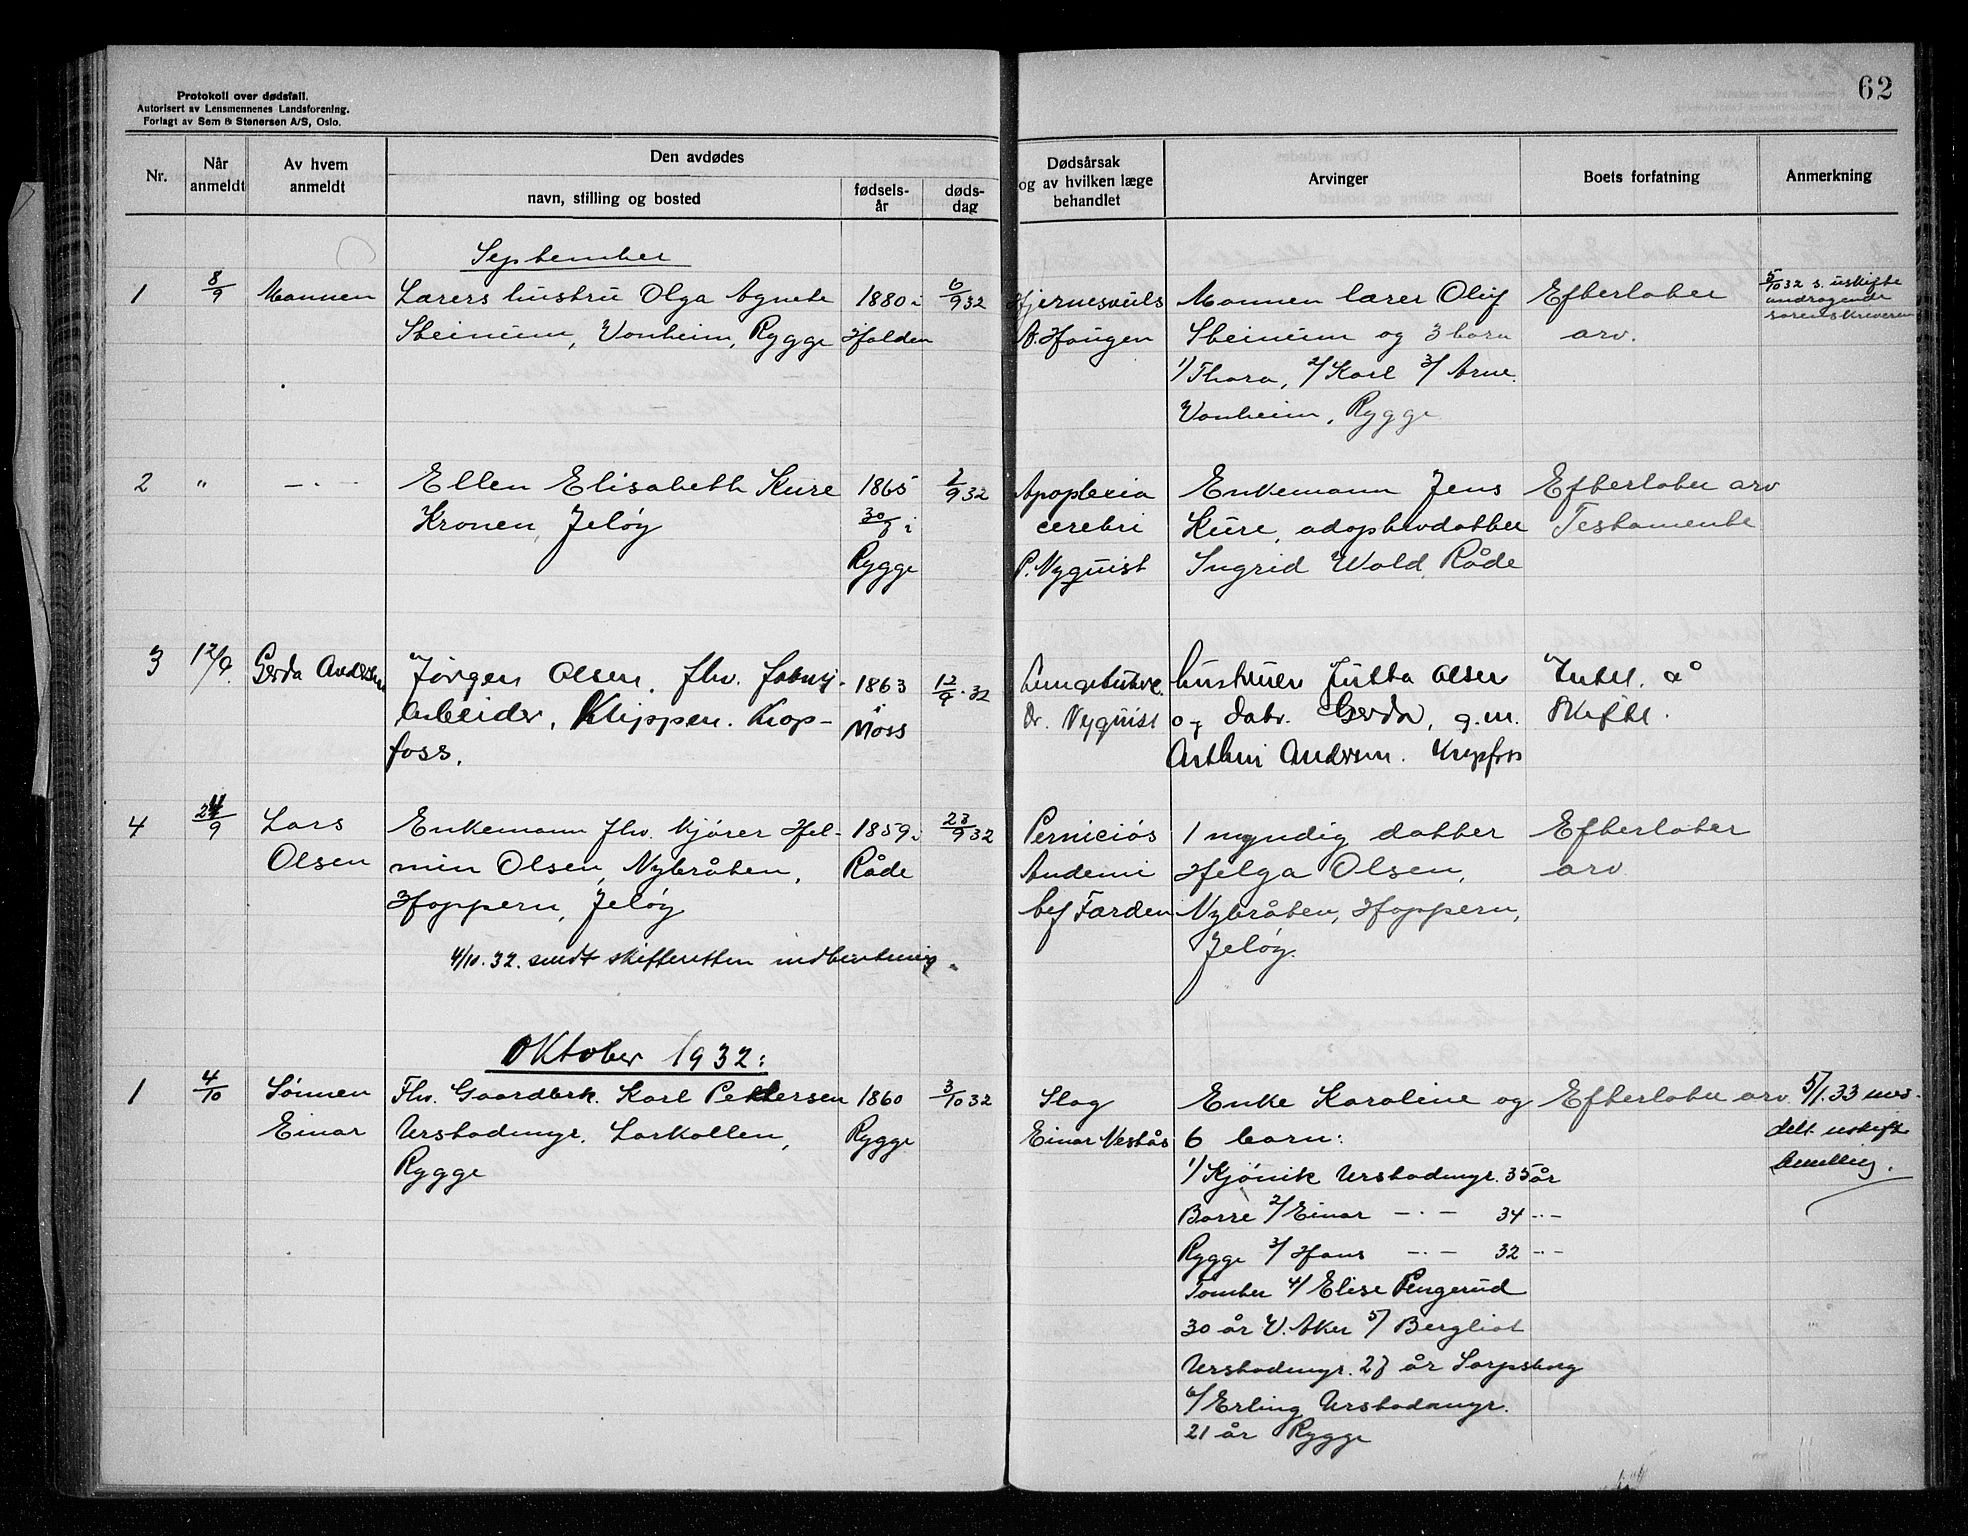 62
Protokoll over dødsfall.
Autorisert av Lensmennenes Landsforening.
Forlagt av Sem & Stenersen A/S, Oslo.
Nr.
Når anmeldt
Av hvem anmeldt
Den avdødes
navn, stilling og bosted
fødsels-år
døds-dag
Dødsårsak
og av hvilken læge
behandlet
Arvinger
Boets forfatning
Anmerkning
September
1 8/9 Mannen Lærers hustru Olga Agnete 1880 i 6/9 32
Steinum, Vonheim, Rygge Halden
Hjernesvuls Mannen lærer Oluf Efterlater 5/10 32 s. uskifte
A. Haugen Steinum og 3 barn arv. andragende
sorenskriveren
1/ Thora, 2/ Karl 3/ Arne.
Vonheim, Rygge
2 " -"- Ellen Elisabeth Kure 1865 7/9 32
Kronen, Jeløy 30/7 i
Rygge
Apoplexia Enkemann Jens Efterlater arv
cerebri Kure, adoptivdatter Testamente
P. Nyquist Ingrid Wold, Råde
3 12/9. Gerda Andersen Jørgen Olsen, fhv. fabrik- 1863 12/9. 32
arbeider, Klippen. Krop- i Moss
foss.
Lungetuberk. hustruen Jutta Olsen Intet å
Dr. Nyquist og datr. Gerda, g.m. skifte.
Arthur Andersen. Kropfoss
4 24/9 Lars Enkemann fhv. kjører Hel- 1859 i 23/9 32
Olsen min Olsen, Nybråten, Råde
Hoppern, Jeløy
4/10. 32. sendt skifteretten indberetning.
Perniciøs 1 myndig datter Efterlater
Anemi Helga Olsen, arv
bef Farden Nybråten, Hoppern,
Jeløy.
Oktober 1932:
1 4/10 Sønnen Fhv. Gaardbrk. Karl Pettersen 1860 3/10 32
Einar Urstadmyr. Larkollen, Rygge
Rygge
Slag Enke Karoline og Efterlater arv. 5/1. 33 med-
Einar Vestås 6 barn: delt uskifte
bevilling.
1/ Kjønik Urstadmyr. 35 år
Borre 2/ Einar -"- 34 -"-
Rygge 3/ Hans -"- 32 -"-
Tomter 4/ Elise Pengerud
30 år V. Aker 5/ Bergliot
Urstadmyr. 27 år Sarpsborg
6/ Erling Urstadmyr.
21 år Rygge